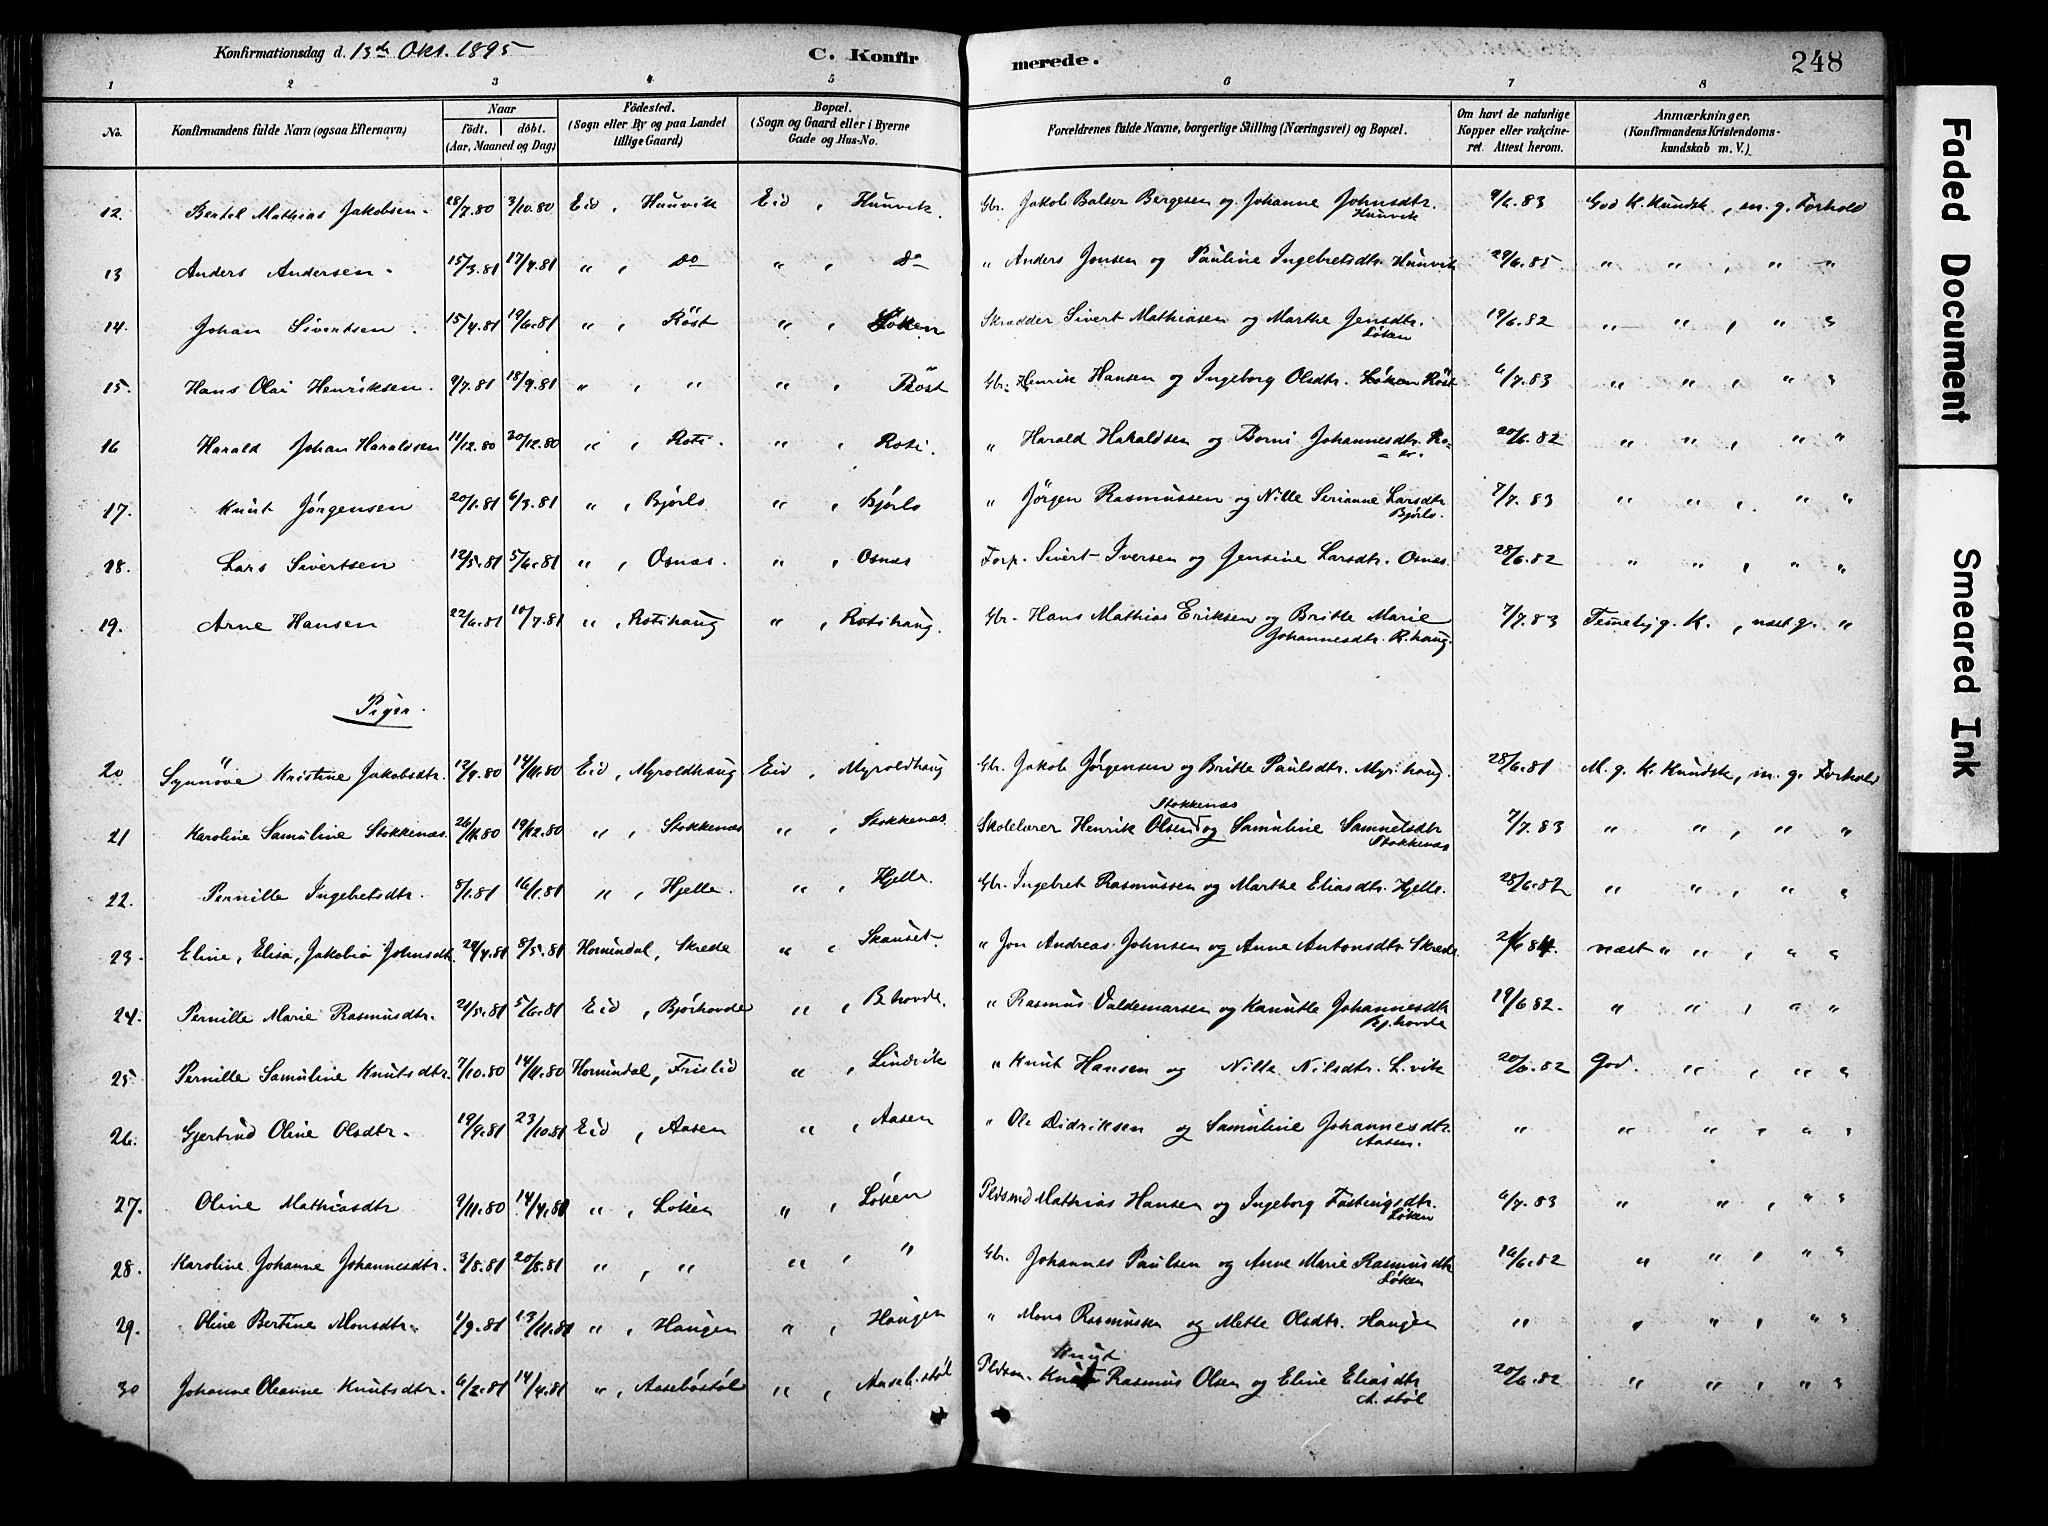 Konfirmationsdag d. 13de Okt. 1895
C. Konfirmerede.
248
1 2 3 4 5 6 7 8
No.
Konfirmandens fulde Navn (ogsaa Efternavn)
Naar
födt. döbt.
(Aar, Maaned og Dag)
Födested.
(Sogn eller By og paa Landet tillige Gaard)
Bopæl.
(Sogn og Gaard eller i Byerne Gade og Hus-No.
Forældrenes fulde Navne, borgerlige Stilling (Næringsvei) og Bopæl.
Om havt de naturlige Kopper eller vakcineret. Attest herom.
Anmærkninger.
(Konfirmandens Kristendomskundskab m. V.)
12. Bertel Mathias Jakobsen. 28/7.80 3/10.80 Eid, Hunvik Eid, Hunvik. Gbr. Jakob Balser Bergesen og Johanne Johnsdtr. Hunvik 9/6.83 God K. Kundsk, m. g. Forhold
13 Anders Andersen 15/3.81 17/4.81 " , Do " , Do " Anders Jonsen og Pauline Ingebretsdtr. Hunvik 29/6.85 " " , " "
14. Johan Sivertsen 15/4.81 19/6.81 " , Röst " , Löken Skrædder Sivert Mathiasen og Marthe Jensdtr. Löken 19/6.82 " " , " "
15. Hans Olai Henriksen. 9/7.81 18/9.81 " , " " , Röst Gbr. Henrik Hansen og Ingeborg Olsdtr. Löken Röst 6/7.83 " " , " "
16 Harald Johan Haraldsen 11/12.80 20/12.80 " , Roti. " , Roti. " Harald Haraldsen og Borni Johannesdtr. 20/6.82 " " , " "
17. Knut Jörgensen 20/1.81 6/3.81 " , Bjørlo " , Bjørlo " Jörgen Rasmussen og Nille Serianne Larsdtr Bjørlo. 7/7.83 " " , " "
18. Lars Sivertsen 12/5.81 5/6.81 " , Osnæs. " , Osnæs Forp. Sivert Iversen og Jensine Larsdtr. Osnæs. 28/6.82 " " , " "
19. Arne Hansen 22/6.81 10/7.81 " , Rotihaug " , Rotihaug. Gbr. Hans Mathias Eriksen og Britte Marie Johannesdtr. R.haug. 7/7.83 Temelig g. K. , næst g. "
Piger.
20 Synnöve Kristine Jakobsdtr. 12/9.80 14/11.80 Eid, Myroldhaug Eid, Myroldhaug Gbr. Jakob Jørgensen og Britte Paulsdtr. Myr.haug. 28/6.81 M. g. K. Kundsk, m. g. Forhold
21 Karoline Samuline Stokkenæs. 26/11.80 19/12.80 " , Stokkenæs " , Stokkenæs. Skolelærer Henrik Olsen Stokkenæs og Samuline Samuelsdtr Stokkenæs 7/7.83 " " , " "
22. Pernille Ingebretsdtr. 8/1.81 16/1.81 " , Hjelle. " , Hjelle. Gbr. Ingebret Rasmussen og Marthe Eliasdtr. Hjelle. 28/6.82 " " , " "
23. Eline, Elisa, Jakobia Johnsdtr. 24/4.81 8/5.81 Hornindal, Skrede " , Skauset. " Jon Andreas Johnsen og Anne Antonsdtr Skrede. næst " " , " "
24. Pernille Marie Rasmusdtr. 21/5.81 5/6.81 Eid, Bjørhovde " , B hovde. " Rasmus Valdemarsen og Kanutte Johannesdtr Bj.hovde 19/6.82. " " , " "
25 Pernille Samuline Knutsdtr. 7/10.80 14/11.80 Hornindal, Frislid " , Lindvik " Knut Hansen og Nille Nilsdtr. L.vik 20/6.82 God. " , " "
26. Gjertrud Oline Olsdtr. 19/9.81 23/10.81 Eid, Aasen " , Aasen " Ole Didriksen og Samuline Johannesdtr. Aasen. " " " , " "
27. Oline Mathiasdtr 9/11.80 14/4.81 " , Løken " , Løken Pldsmd Mathias Hansen og Ingeborg Fastingsdtr. Løken 6/7.83 " " , " "
28. Karoline Johanne Johannesdtr. 3/8.81 20/8.81 " , " " , " Gbr. Johannes Paulsen og Anne Marie Rasmusdtr Løken 16/6.82 " " , " "
29. Oline Bertine Monsdtr. 1/9.81 13/11.81 " , Haugen " , Haugen " Mons Rasmussen og Mette Olsdtr. Haugen " " " , " "
30 Johanne Oleanne Knutsdtr. 6/2.81 14/4.81 " , Aasebøstøl " , Aaseb.støl Pldsm. Knut Rasmus Olsen og Eline Eliasdtr A. støl 20/6.82 " " , " "
Faded Document
Smeared Ink